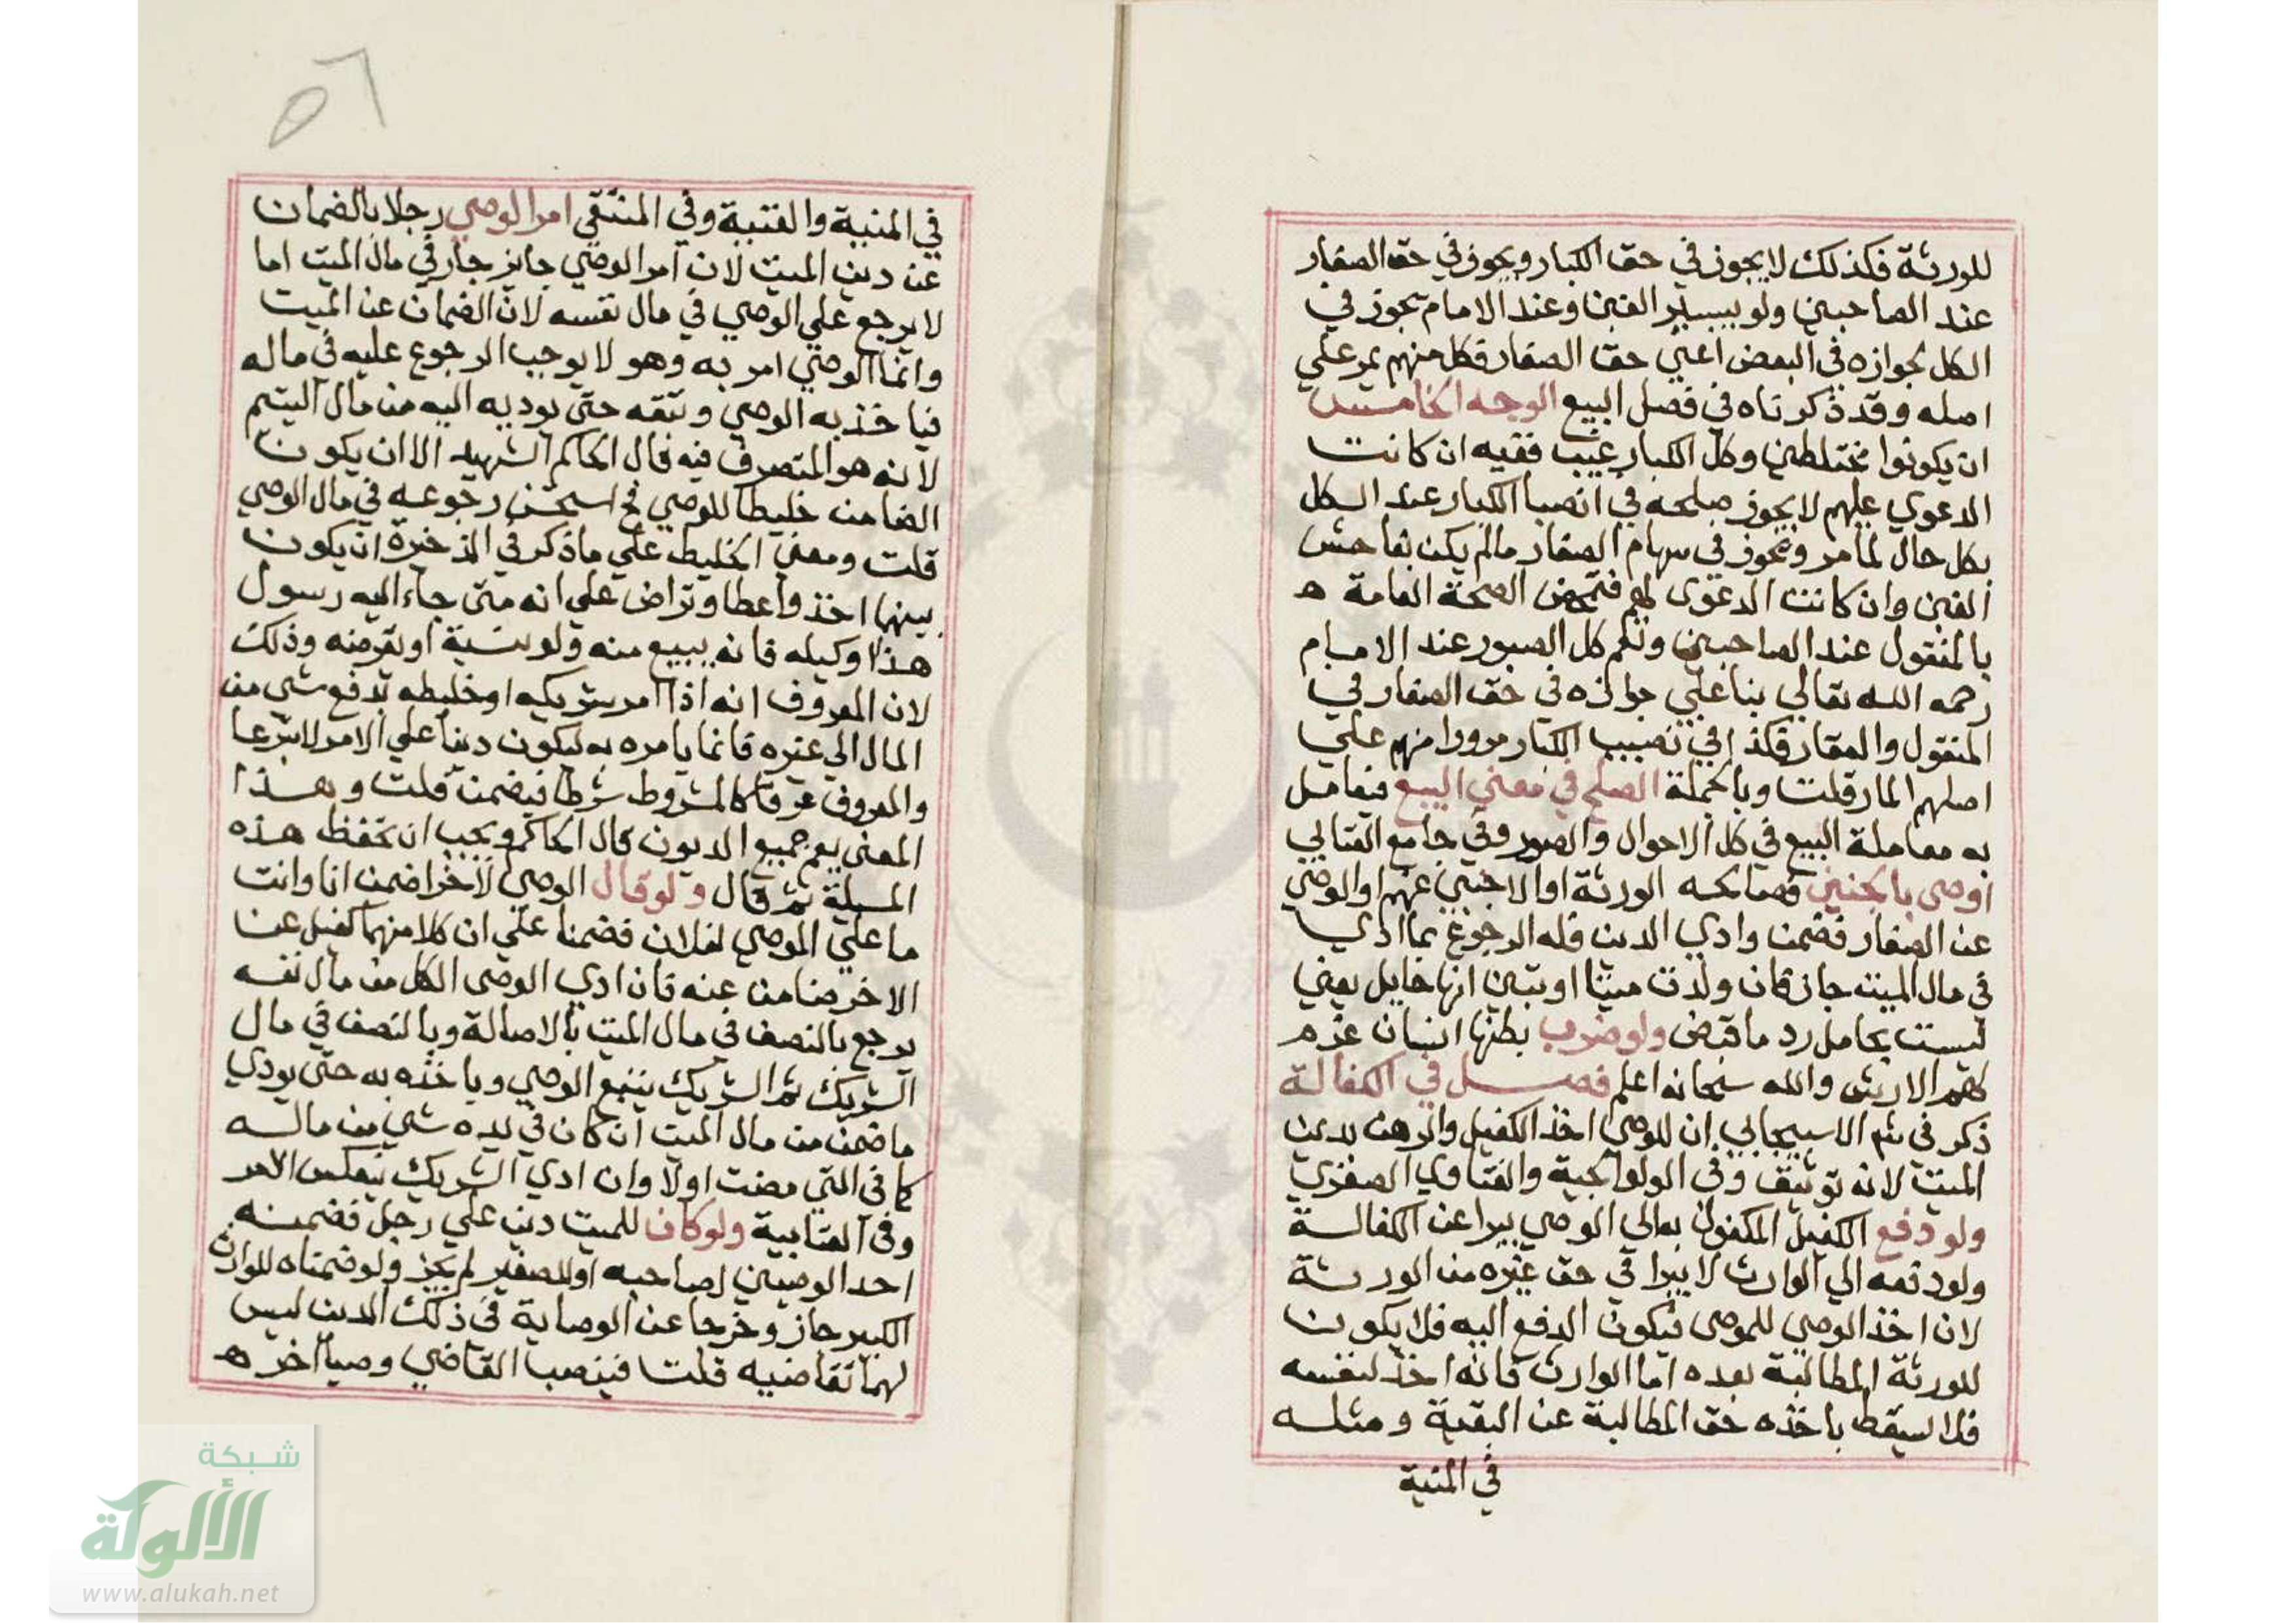 للورثة فكذلك لا يجوز في حق الكبار ويجوز في حق الصغار
عند الصاحبين ولو بيسير الغبن وعند الامام يجوز في
الكل لجوازه في البعض اعني حق الصغار فكل منهم يمر علي
اصله وقد ذكرناه في فصل البيع الوجه الخامس
ان يكونوا مختلطين وكل الكبار غيب ففيه ان كانت
الدعوي عليهم لا يجوز صلحه في انصبا الكبار عند الكل
بكل حال لما مر ويجوز في سهام الصغار مالم يكن بفاحش
الغبن وان كانت الدعوى لهم العامة ه
بالمنقول عند الصاحبين وتكم كل الصور عند الامام
رحمه الله تعالي بنا علي جوازه في حق الصغار في
المنقول والعقار فكذا في نصيب الكبار مرورا منهم علي
اصلهم المار قلت وبالجملة الصلح في معني البيع فيعامل
به معاملة البيع في كل الاحوال والصور وفي جامع العتابي
اوصى بالجنين فصالحه الورثة او الاجنبي عنهم او الوصي
عن الصغار فضمن وادي الدين فله الرجوع بما ادي
في مال الميت جاز فان ولدت ميتا او تبين انها حايل يعني
ليست بحامل رد ما قبض ولو ضرب بطنها انسان غرم
لهم الارش والله سبحانه اعلم فصل في الكفالة
ذكر في شم الاسبيجابي ان للوصي اخذ الكفيل والرهن بدين
الميت لانه توثيق وفي الولوالجية والفتاوي الصغري
ولو دفع الكفيل المكفول به الي الوصي يبرا عن الكفالة
ولو دفعه الي الوارث لا يبرا في حق غيره من الورثة
لان اخذ الوصي للموصى فيكون الدفع اليه فلا يكون
للورثة المطالبة بعده اما الوارث فانه اخذ لنفسه
فلا يسقط باخذه حق المطالبة عن البقية ومثله
في المنية
٥٦
في المنية والقنية وفي المنتقي امر الوصي رجلا بالضمان
عن دين الميت لان امر الوصي جايز جار في مال الميت اما
لا يرجع علي الوصي في مال نفسه لان الضمان عن الميت
وانما الوصي امر به وهو لا يوجب الرجوع عليه في ماله
فياخذ به الوصي حتى يوديه اليه من مال اليتيم
لانه هو المتصرف فيه قال الحاكم الشهيد الا ان يكون
الضامن خليطا للوصي فح استحسن رجوعه في مال الوصي
قلت ومعني الخليط علي ما ذكر في الذخيرة ان يكون
بينهما اخذ واعطا وتراض علي انه متى جاء اليه رسول
هذا او كيله فانه يبيع منه ولو نسية او يقرضه وذلك
لان المعروف انه اذا امر شريكه او خليطه بدفع شي من
المال الي غيره فانما يامره به ليكون دينا علي الامر لا تبرعا
والمعروف عرفا كالمشروط شرطا فيضمن قلت وبهذا
المعنى يعم جميع الديون قال الحاكم ويجب ان تحفظ هذه
المسيلة ثم قال ولو قال الوصي لاخر اضمن انا وانت
ما علي الموصي لفلان فضمنا علي ان كلا منهما كفيل عن
الاخر ضامن عنه فان ادي الوصى الكل من مال نفسه
يرجع بالنصف في مال الميت بالاصالة وبالنصف في مال
الشريك ثم الشريك يتبع الوصي وياخذه به حتى يودي
ما ضمن من مال الميت ان كان في يده شي من ماله
كما في التي مضت اولا وان ادي الشريك ينعكس الامر
وفي العتابية ولو كان للميت دين علي رجل فضمنه
احد الوصيين لصاحبه او للصغير لم يجز ولو ضمناه للوارث
الكبير جاز وخرجا عن الوصاية في ذلك الدين ليس
لهما تقاضيه قلت فينصب القاضي وصيا اخر ه
شبكة
الألوكة
www.alukah.net